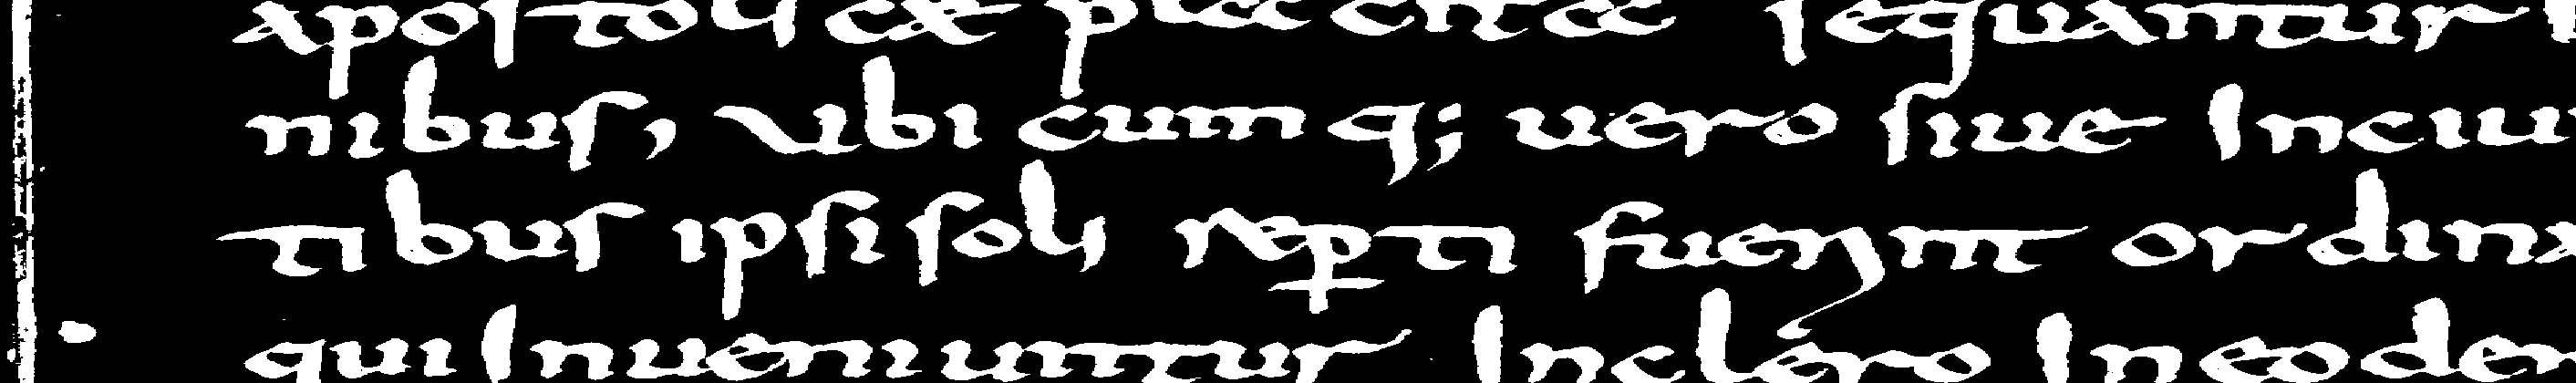 apostolica placita sequantur
nibus, ubi cumq; uero siue Inciui
tibus ipsi soli reperti fuerint ordina
qui Inueniuntur Inclero Ineoder